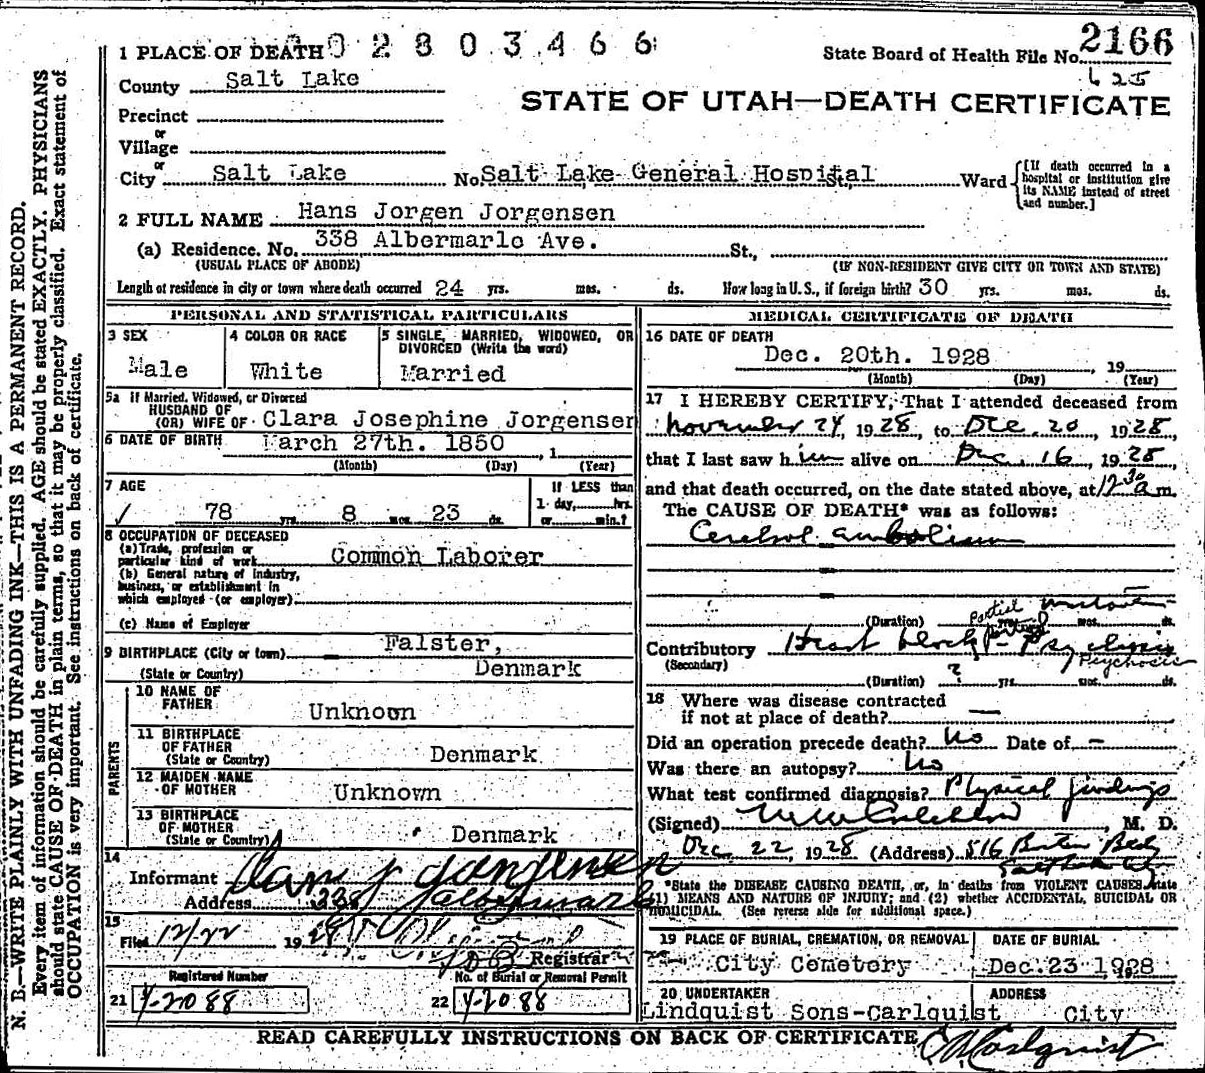 1 PLACE OF DEATH 0 2 8 0 3 4 6 6
State Board of Health File No. 2166
625
County Salt Lake
STATE OF UTAH—DEATH CERTIFICATE
Precinct
or
Village
or
City Salt Lake No. Salt Lake General Hospital St., Ward
[If death occurred in a
hospital or institution give
its NAME instead of street
and number.]
2 FULL NAME Hans Jorgen Jorgensen
(a) Residence. No. 338 Albermarle Ave. St.,
(USUAL PLACE OF ABODE) (IF NON-RESIDENT GIVE CITY OR TOWN AND STATE)
Length of residence in city or town where death occurred 24 yrs. mos. ds. How long in U. S., if foreign birth? 30 yrs. mos. ds.
PERSONAL AND STATISTICAL PARTICULARS
3 SEX
Male
4 COLOR OR RACE
White
5 SINGLE, MARRIED, WIDOWED, OR
DIVORCED (Write the word)
Married
5a If Married, Widowed, or Divorced
HUSBAND OF
(OR) WIFE OF Clara Josephine Jorgensen
6 DATE OF BIRTH March 27th. 1850, 1
(Month) (Day) (Year)
7 AGE
78 yrs. 8 mos. 23 ds.
If LESS than
1 day, hrs.
or min.?
8 OCCUPATION OF DECEASED
(a) Trade, profession or
particular kind of work Common Laborer
(b) General nature of industry,
business, or establishment in
which employed (or employer)
(c) Name of Employer
9 BIRTHPLACE (City or town) Falster,
(State or Country) Denmark
PARENTS
10 NAME OF
FATHER Unknown
11 BIRTHPLACE
OF FATHER
(State or Country) Denmark
12 MAIDEN NAME
OF MOTHER Unknown
13 BIRTHPLACE
OF MOTHER
(State or Country) Denmark
14
Informant Hans J Jorgensen
Address 338 Albermarle
15
Filed 12/22 1928
Registrar
Registered Number
21 Y-2088
No. of Burial or Removal Permit
22 Y-2088
MEDICAL CERTIFICATE OF DEATH
16 DATE OF DEATH
Dec. 20th. 1928, 19
(Month) (Day) (Year)
17 I HEREBY CERTIFY, That I attended deceased from
November 24, 1928, to Dec. 20, 1928,
that I last saw him alive on Dec. 16, 1928,
and that death occurred, on the date stated above, at 12 30 a m.
The CAUSE OF DEATH* was as follows:
Cerebral embolism
(Duration) yrs. mos. ds.
Contributory Partial Heart block - Psychosis
(Secondary) Psychosis
(Duration) ? yrs. mos. ds.
18 Where was disease contracted
if not at place of death? —
Did an operation precede death? No Date of —
Was there an autopsy? No
What test confirmed diagnosis? Physical findings
(Signed) , M. D.
Dec 22, 1928 (Address) 516 Boston Bldg
Salt Lake City
*State the DISEASE CAUSING DEATH, or, in deaths from VIOLENT CAUSES, state
(1) MEANS AND NATURE OF INJURY; and (2) whether ACCIDENTAL, SUICIDAL OR
HOMICIDAL. (See reverse side for additional space.)
19 PLACE OF BURIAL, CREMATION, OR REMOVAL
City Cemetery
DATE OF BURIAL
Dec. 23 1928
20 UNDERTAKER
Lindquist Sons-Carlquist
ADDRESS
City
READ CAREFULLY INSTRUCTIONS ON BACK OF CERTIFICATE
C A Carlquist
N. B.—WRITE PLAINLY WITH UNFADING INK—THIS IS A PERMANENT RECORD.
Every item of information should be carefully supplied. AGE should be stated EXACTLY. PHYSICIANS
should state CAUSE OF DEATH in plain terms, so that it may be properly classified. Exact statement of
OCCUPATION is very important. See instructions on back of certificate.